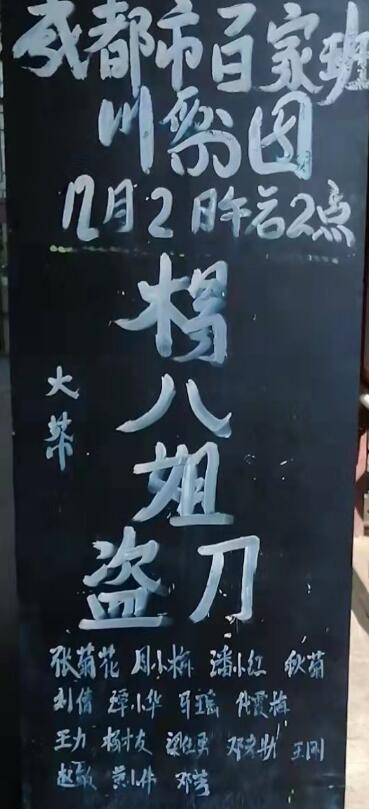 成都市百家班
川剧团
12月2日午后2点
大幕
杨八姐
盗刀
张菊花 周小梅 潘小红 秋菊
刘倩 谭小华 马瑶 代霞梅
王力 杨才友 梁仕勇 王刚
赵敏 黄小伟 邓芳